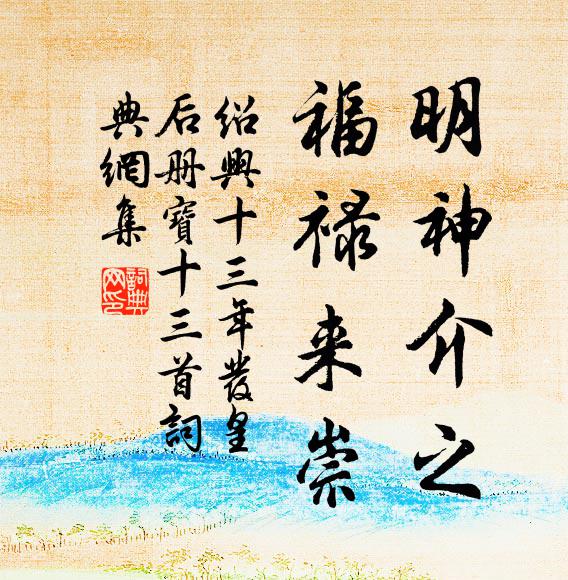 明神介之
福禄来崇
绍興十三年發皇
后册寶十三首詞
典網集
詞典
网印